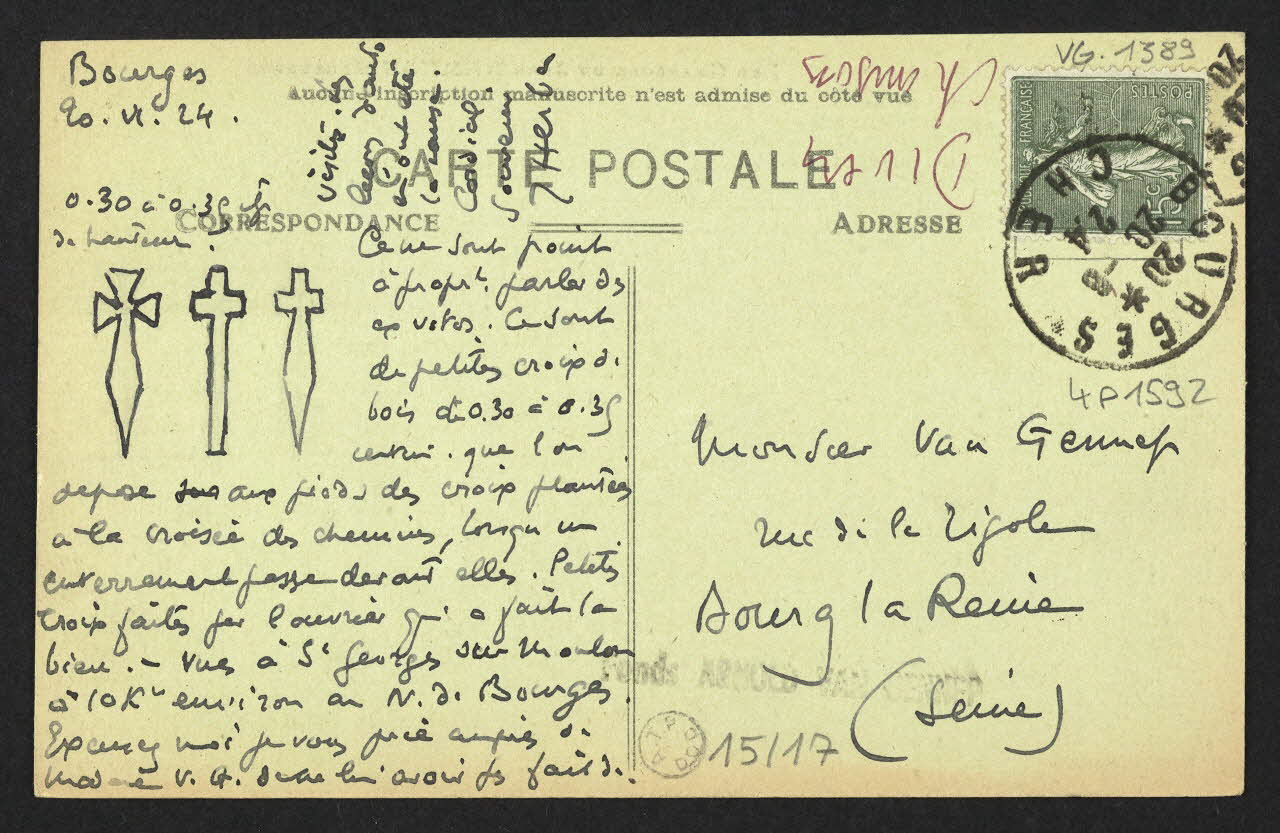 Bourges
20. VI. 24.
Aucune inscription manuscrite n'est admise du côté vue
CARTE POSTALE
CORRESPONDANCE
ADRESSE
0.30 à 0.35
de hauteur.
Ce ne sont point
à propr.t parler des
ex votos. Ce sont
de petites croix de
bois de 0.30 à 0.35
centim. que l'on
depose sous aux pieds des croix plantées
à la croisée des chemins, lorsqu'un
enterrement passe devant elles. Petites
croix faites par l'ouvrier qui a fait la
bieu. – Vues à St Georges sur Moulon
à 10 K.m environ au N. de Bourges.
Excusez moi je vous prie auprès de
Madame V. G. de ne lui avoir pas fait de
visite.
la cause.
Cordial
Souvenir
VG. 1389
FRANÇAISE
POSTES
15c
BOURGES
CHER
20
24
4P1592
Monsieur Van Gennep
rue de la Rigole
Bourg la Reine
(Seine)
15/17